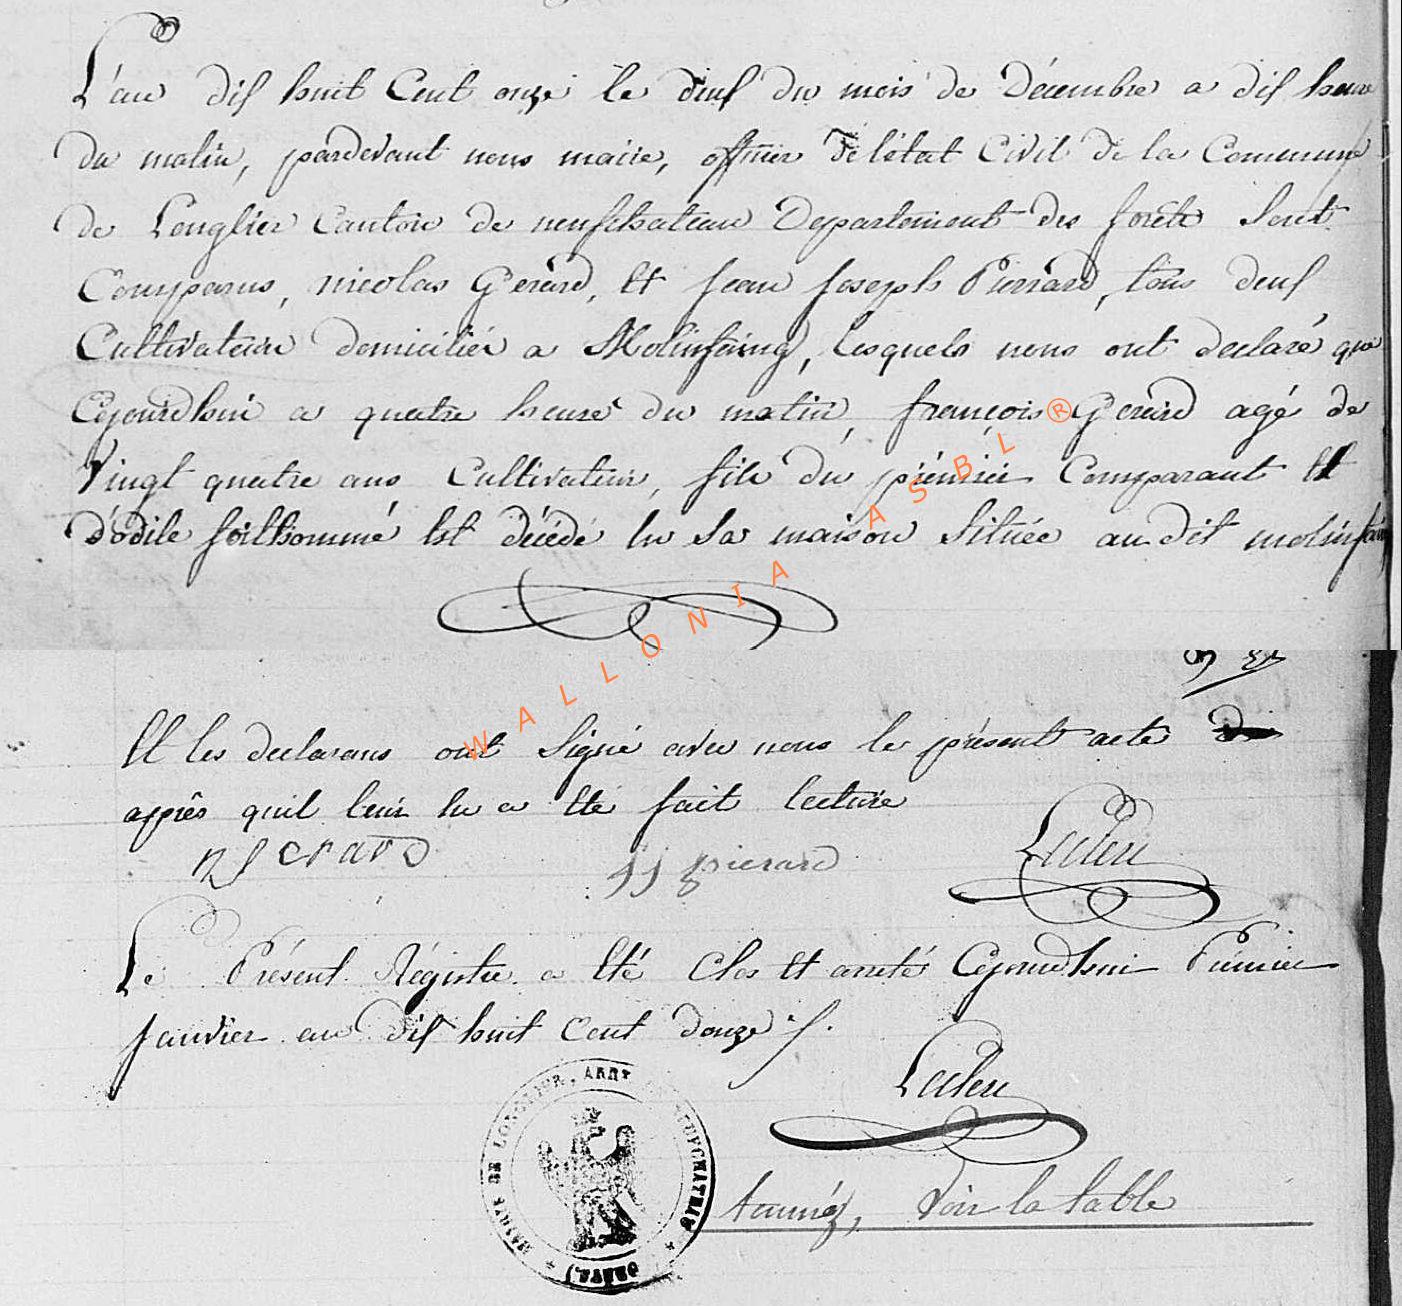 L'an dix huit Cent onze le deux du mois de Décembre a dix heure
du matin, pardevant nous maire, officier de l'état Civil de la Commune
de Longlier Canton de neufchateau Departement des forêts Sont
Comparus, nicolas Gerard, Et jean joseph Pierrard, tous deux
Cultivateur domicilier a Molinfaing, lesquels nous ont declaré que
Cejourdhui a quatre heure du matin, françois Gerard agé de
Vingt quatre ans Cultivateur, fils du prémier Comparant Et
d'odile foilhommé Est décédé En Sa maison Située au dit molinfaing
WALLONIA ASBL ®
Et les declarans ont Signé avec nous le présent acte
apprês quil leur En a Eté fait lecture
n j erard jj pierard Leclere
Le Présent Régistre a Eté Clos Et arreté Cejourdhui Prémier
janvier an dix huit Cent douze
Leclere
MAIRIE DE LONGLIER, ARRT DE NEUFCHATEAU
(FORETS)
Voir la table